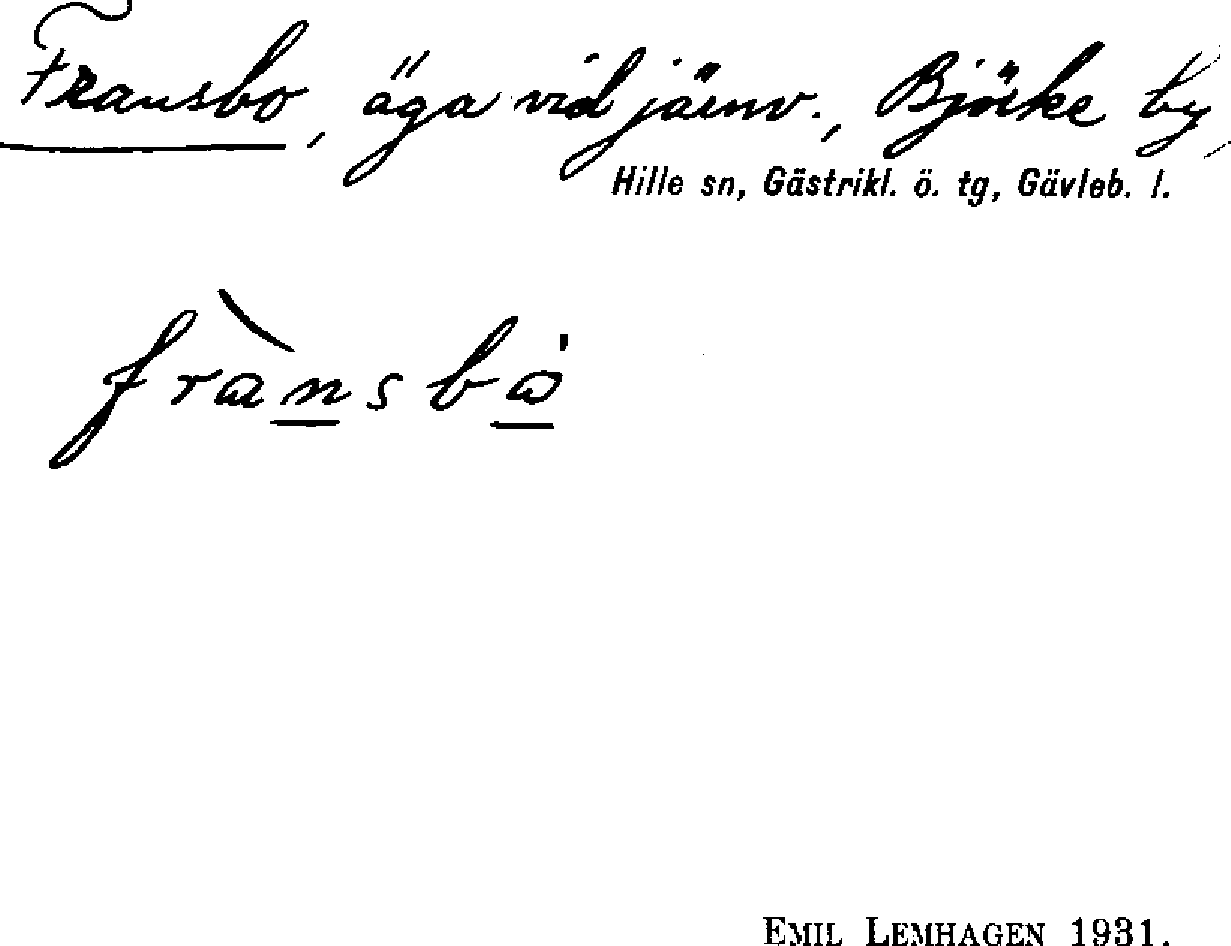 Fransbo, äga vid järnv., Björke by,
Hille sn, Gästrikl. ö. tg, Gävleb. l.
frànsbὼ
EMIL LEMHAGEN 1931.